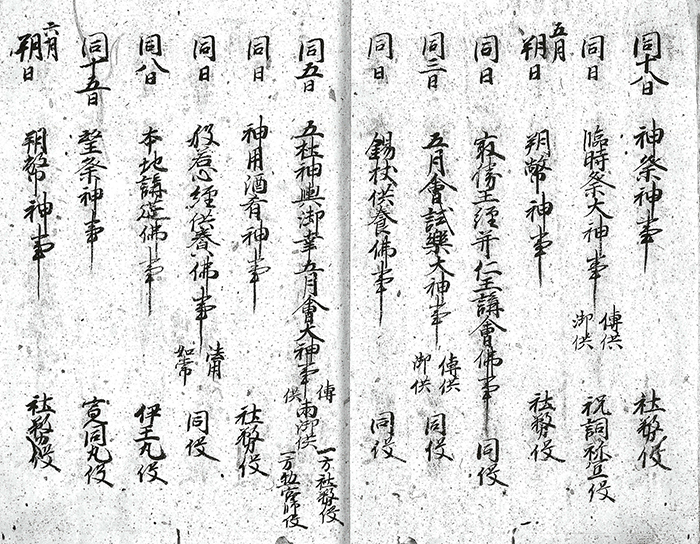 同十八日 神祭神事 社務役
同日 臨時祭大神事 傳供 御供 祝詞祢宜役
五月朔日 朔幣神事 社務役
同日 最勝王経并仁王講會佛事 同役
同三日 五月會試樂大神事 傳供 御供 同役
同日 錫杖供養佛事 同役
同五日 五社神輿御幸五月會大神事 傳供 両御供 一方社務役 一方
同日 神用酒肴神事 社務役
同日 般若心経供養佛事 法用如常 同役
同八日 本地講莚佛事 伊王九役
同十五日 神事 同丸役
六月朔日 朔幣神事 社務役